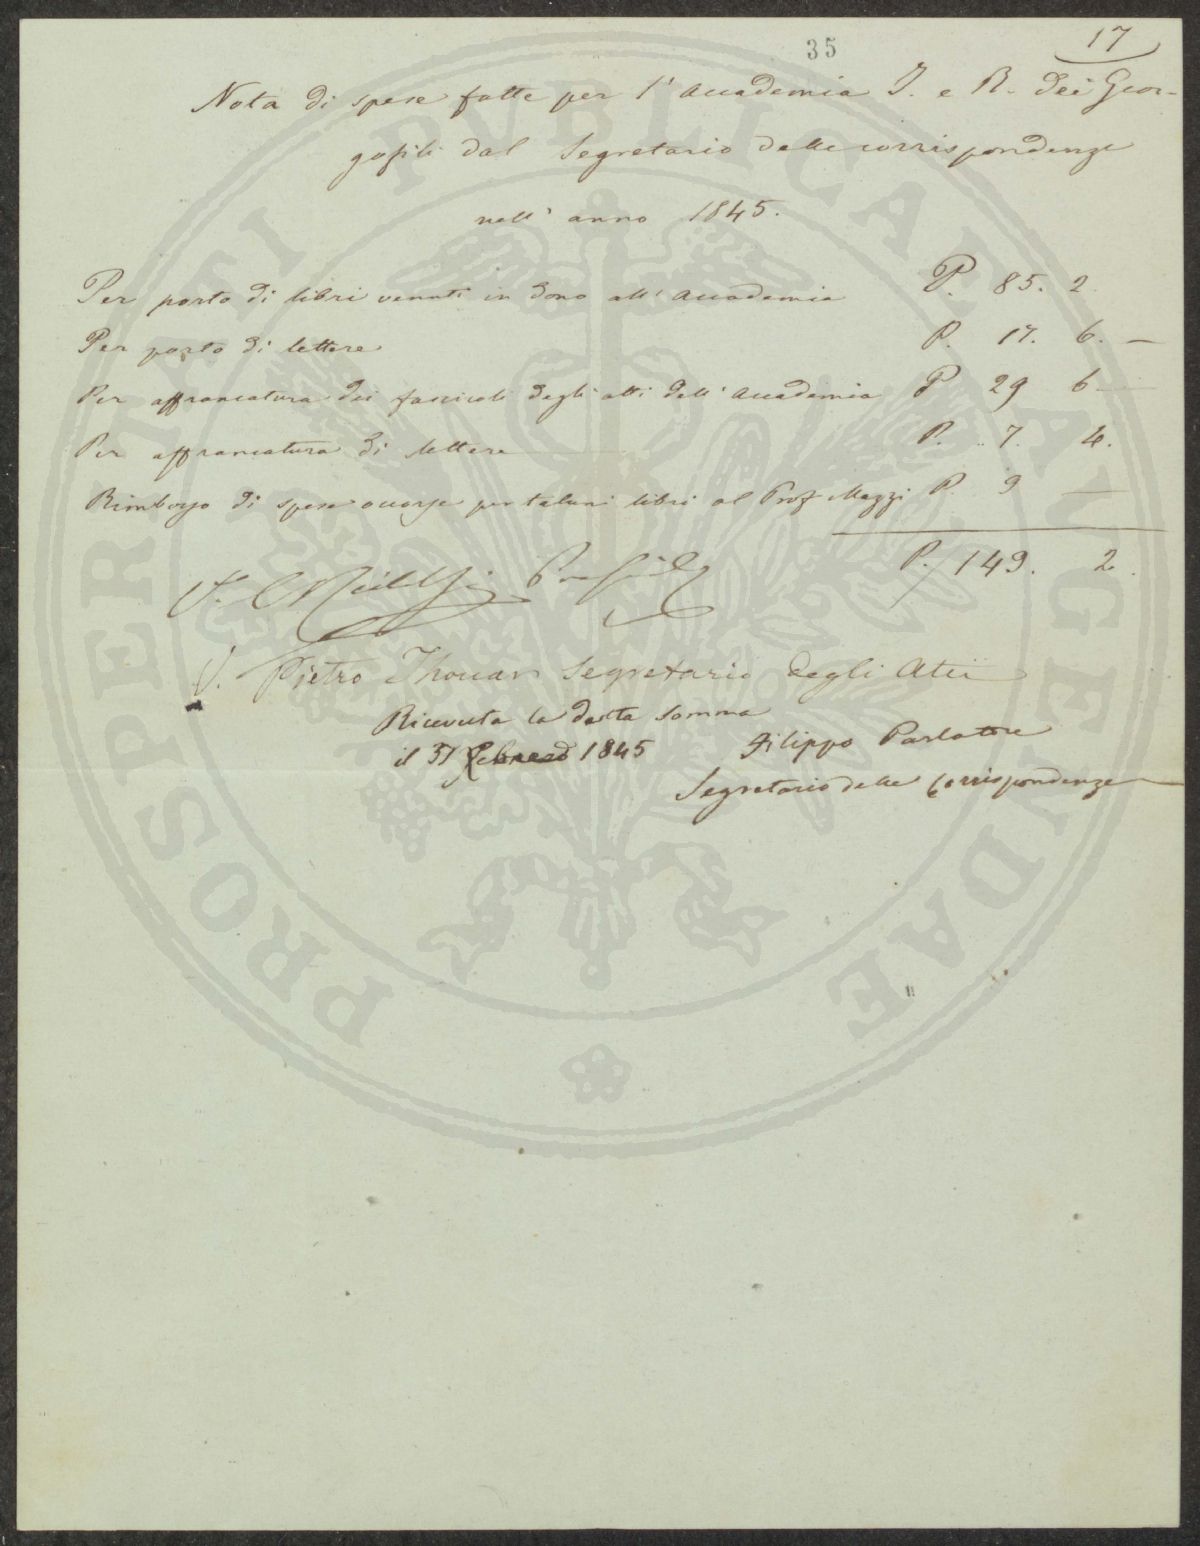 35
17
Nota di spese fatte per l'Accademia I. e R. dei Geor-
gofili dal Segretario delle corrispondenze
nell'anno 1845.
Per porto di libri venuti in dono all'Accademia P. 85. 2
Per porto di lettere P. 17. 6. —
Per affrancatura dei fascicoli degli atti dell'Accademia P 29 6 —
Per affrancatura di lettere P. 7. 4.
Rimborso di spese occorse per taluni libri al Prof Mazzi P. 9 —
P. 149. 2.
V. Ridolfi Presid
V. Pietro Thouar Segretario degli Atti
Ricevuta la detta somma
il 31 1845
Filippo Parlatore
Segretario delle Corrispondenze
PROSPERITATI PVBLICAE AVGENDAE